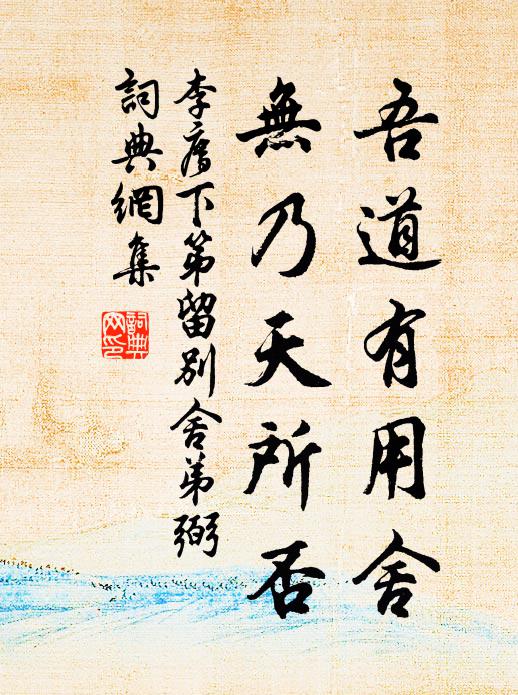 吾道有用舍
無乃天所否
李廌下第留別舍弟弼
詞典網集
詞典网印